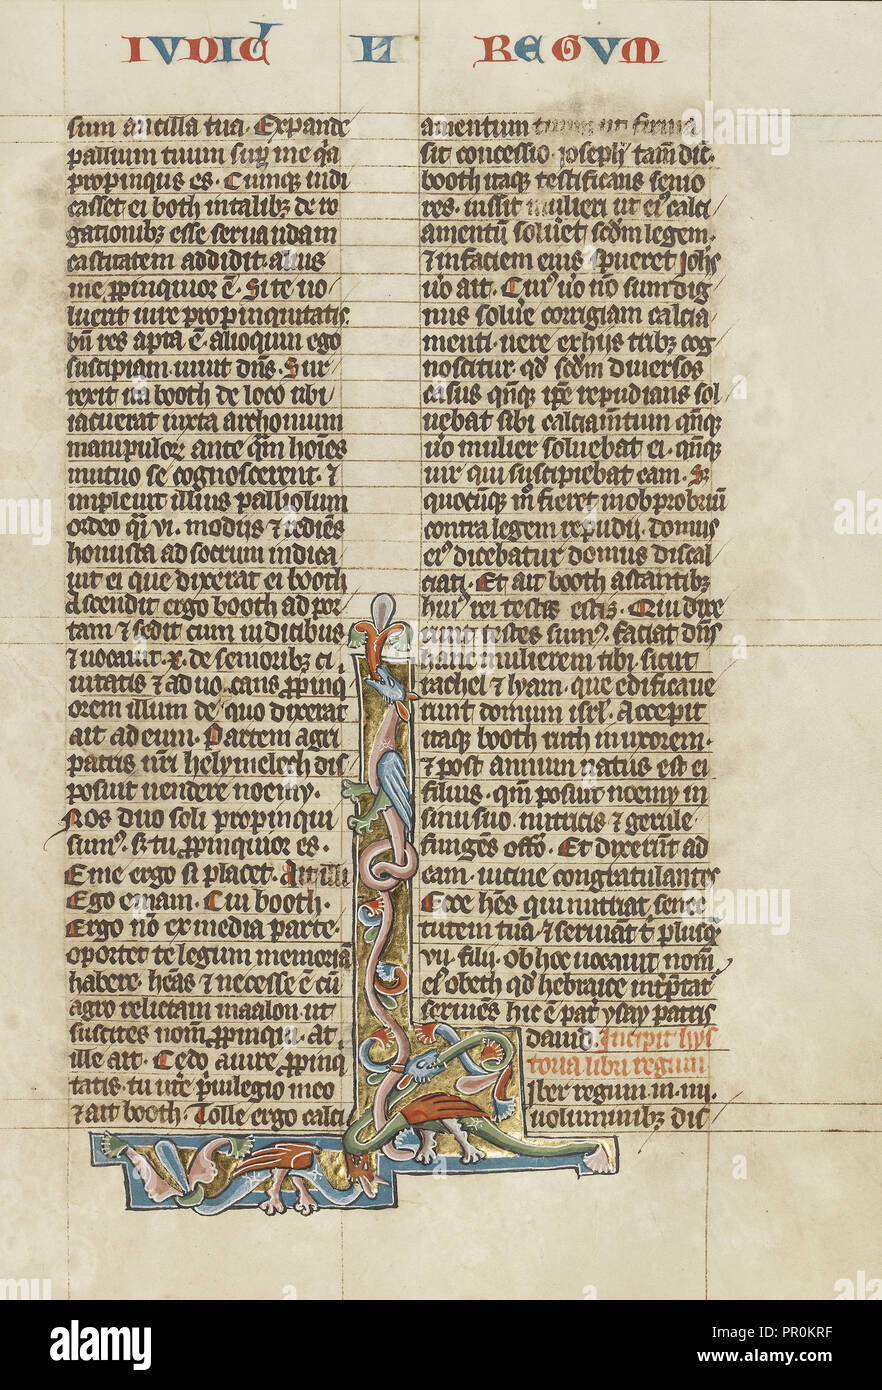 IUDIC N REGUM
sum ancilla tua. Expande
pallium tuum sup me q̃a
propinquus es. Cumq̃ indi
casset ei both in talibꝫ de ro
gationibꝫ esse seruandam
castitatem addidit. alius
me ꝓpinquior ē. Si te uo
luerit iure propinquitatis
bñ res apta ē. alioquin ego
suscipiam. uiuit dñs. Sur
rexit ita booth de loco ubi
iacuerat iuxta archonium
manipuloꝝ ante q̃m hoies
mutuo se cognoscerent. ⁊
impleuit illius palliolum
ordeo q̃i vi. modijs ⁊ rediēs
honusta ad socrum indica
uit ei que dixerat ei booth
Ascendit ergo booth ad por
tam ⁊ sedit cum iudicibus
⁊ uocauit. x. de senioribꝫ ci
uitatis ⁊ aduocans ꝓpinq
orem illum de quo dixerat
ait ad eum. Partem agri
patris nr̃i helymelech dis
posuit uendere noemy.
Nos duo soli propinqui
sumꝰ. sꝫ tu ꝓpinquior es.
Eme ergo si placet. Ait illi
Ego emam. Cui booth.
Ergo nō ex media parte.
oportet te legum memoriam
habere. heñs ⁊ necesse ē cū
agro relictam maalon. ut
suscites nom̃ ꝓpinqui. At
ille ait. Cedo a iure ꝓpinq
tatis. tu ut̃e p̃uilegio meo
⁊ ait booth. Tolle ergo calci
amentum tuum ut firma
sit concessio. Joseph tam̃ dic̃.
booth itaq̃ testificans senio
res. iussit mulieri ut eiꝰ calci
amentū soluet scd̃m legem.
⁊ in faciem eius spueret Johs
uo ait. Cuiꝰ uo nō sum dig
nus solue corrigiam calcia
menti. uere ex hijs tribꝫ cog
noscitur qd̃ scd̃m diuersos
casus qñq̃ ip̃e repudians sol
uebat sibi calciam̃tum qñq̃
uo mulier soluebat ei. qñq̃
uir qui suscipiebat eam. Sꝫ
quocūq̃ m̃ fieret in obprobriū
contra legem repudij. domus
eiꝰ dicebatur domus discal
ciati. Et ait booth astantibꝫ
huiꝰ rei testes estis. Qui dixe
runt testes sumꝰ. faciat dñs
hanc mulierem tibi. sicut
rachel ⁊ lyam. que edificaue
runt domum isrl̃. Accepit
itaq̃ booth ruth in uxorem.
⁊ post annum natus est ei
filius. qm̃ posuit noemy in
sinu suo. nutricis ⁊ gerule
fungēs off̃o. Et dixerūt ad
eam. uicine congratulantes
Ecce hēs qui nutriat senec
tutem tuā. ⁊ seruiāt t̃ plusq̃
vii. filij. ob hoc uocauit nom̃
eiꝰ obeth qd̃ hebraice int̃p̃tat̃
seruiēs hic ē pat̃ ysay patris
dauid. Incipit hys
toria libri regum
Iber regum in. iiij.
uoluminibꝫ dis
alamy
alamy
Image ID: PR0KRF
www.alamy.com